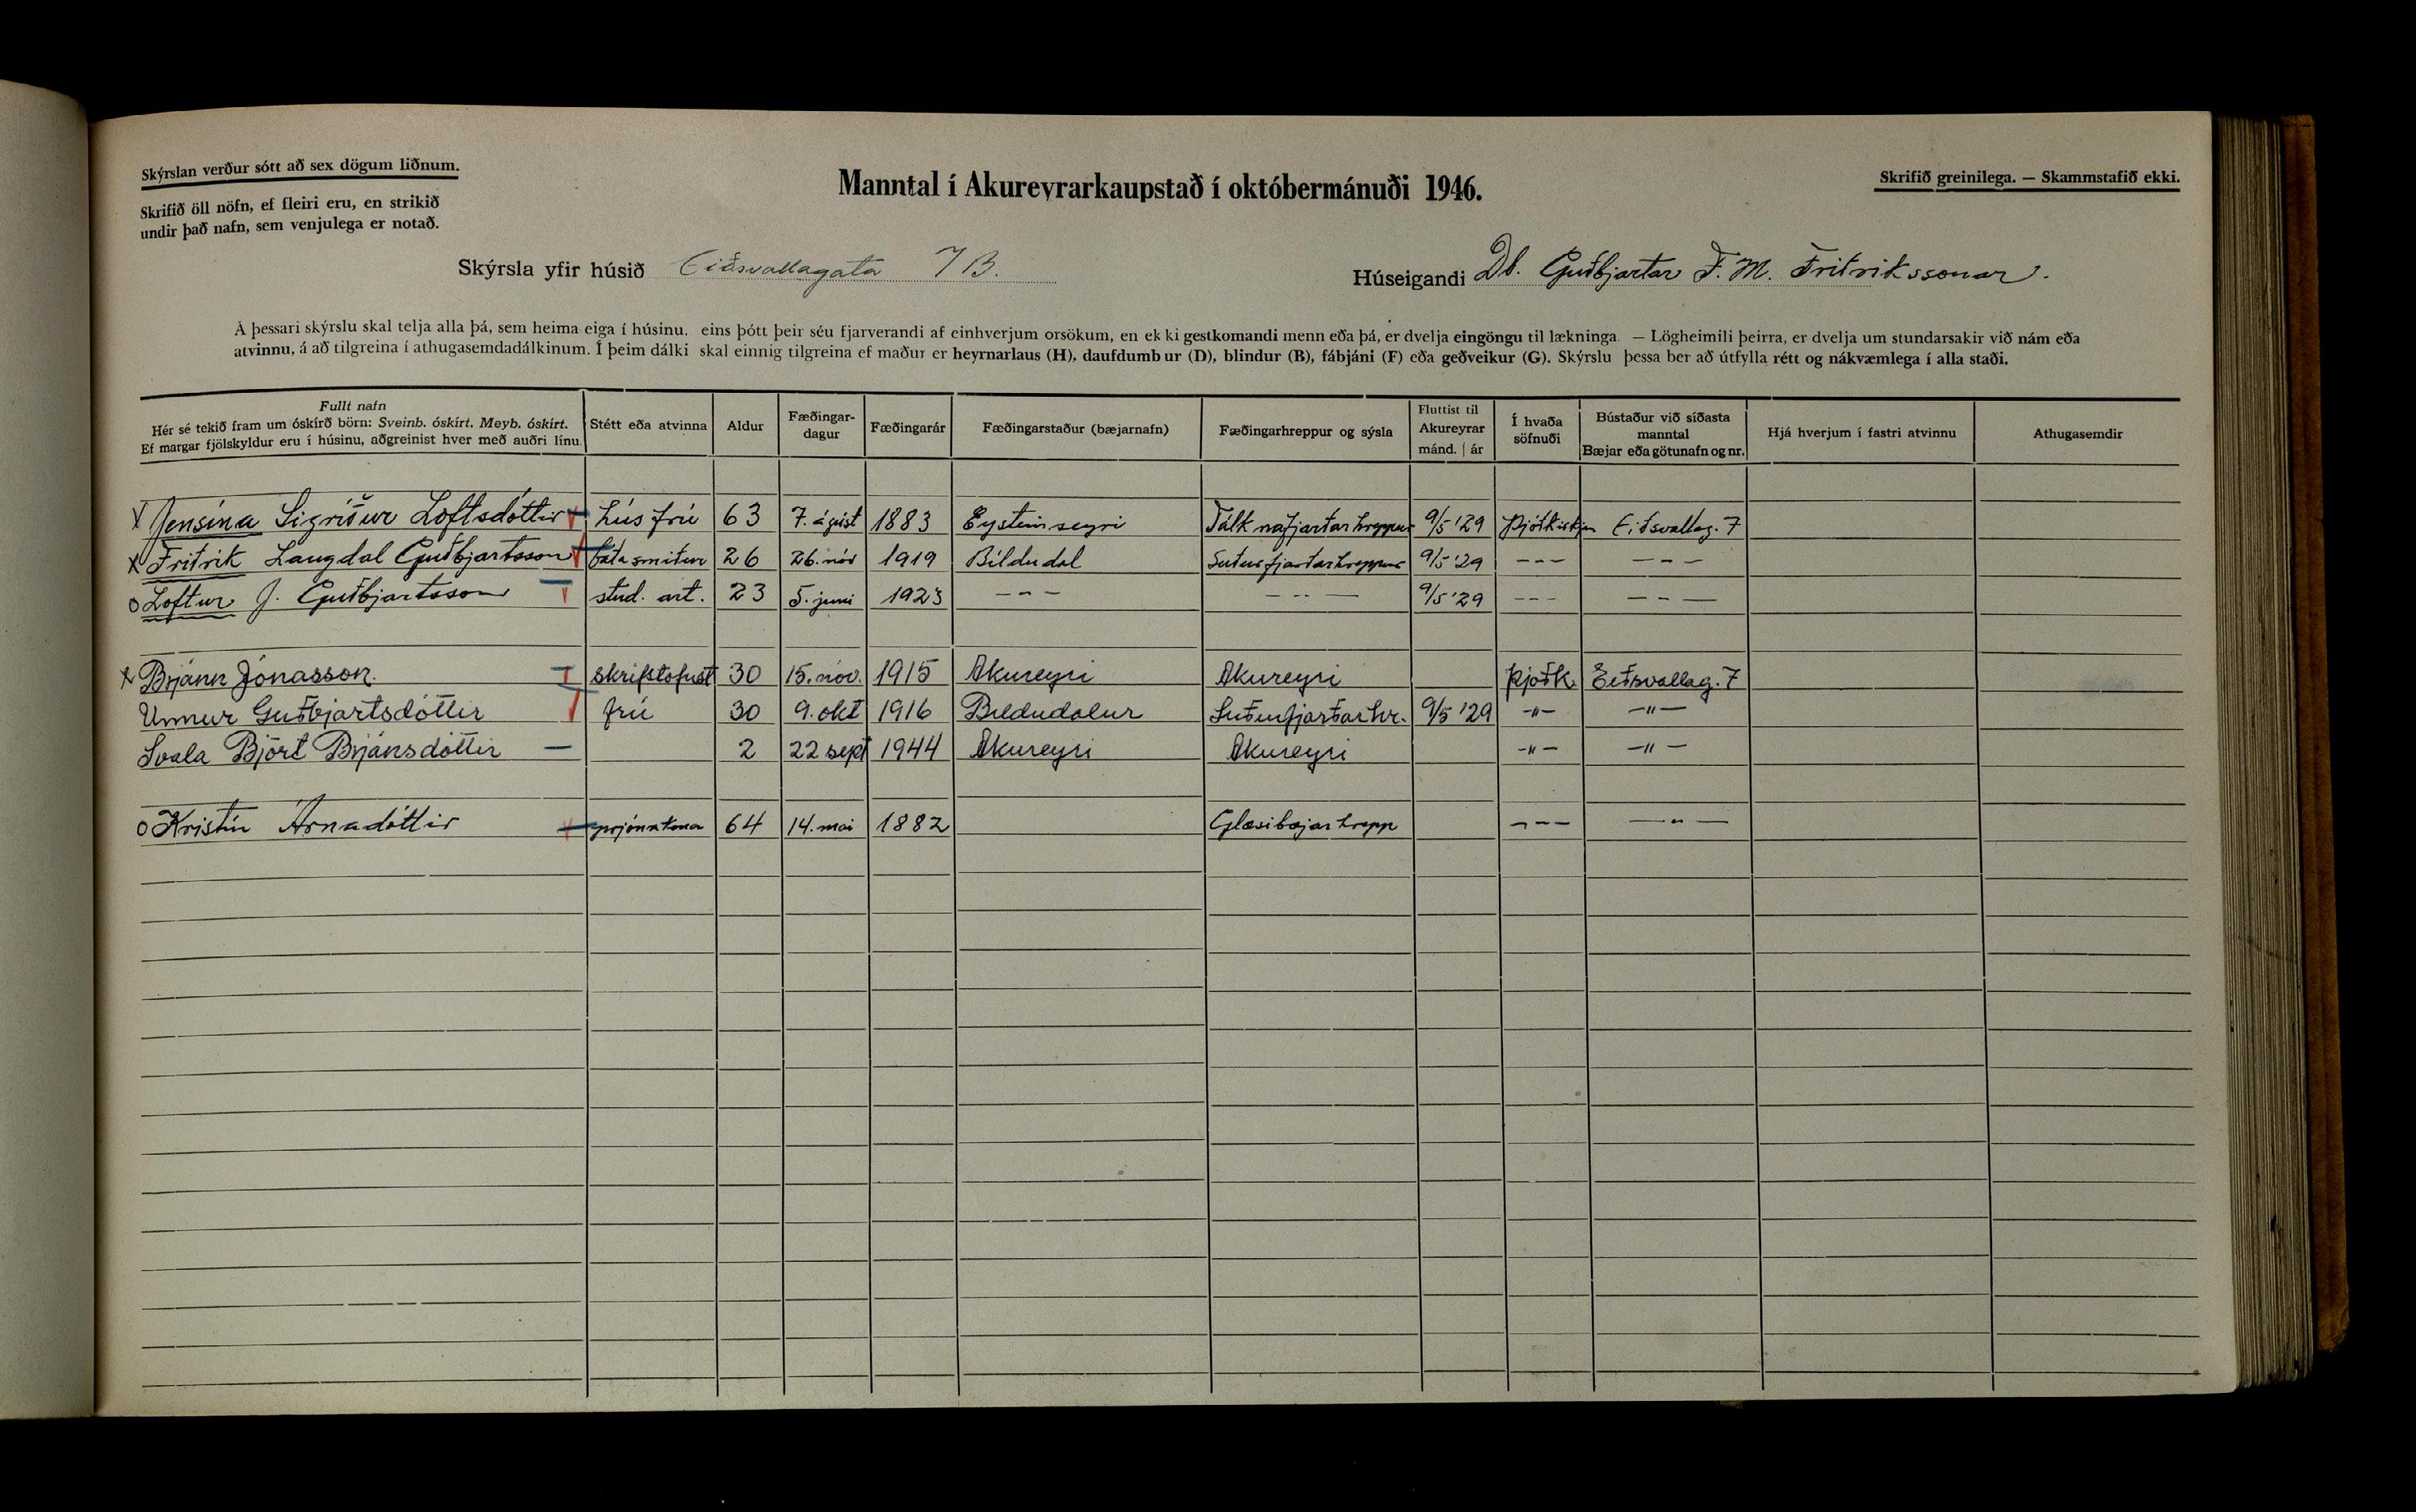 Skýrslan verður sótt að sex dögum liðnum.
Skrifið öll nöfn, ef fleiri eru, en strikið
undir það nafn, sem venjulega er notað.
Manntal í Akureyrarkaupstað í októbermánuði 1946.
Skrifið greinilega. — Skammstafið ekki.
Skýrsla yfir húsið Eiðsvallagata 7B.
Húseigandi Db. Guðbjartar F. M. Friðrikssonar.
Á þessari skýrslu skal telja alla þá, sem heima eiga í húsinu, eins þótt þeir séu fjarverandi af einhverjum orsökum, en ekki gestkomandi menn eða þá, er dvelja eingöngu til lækninga. — Lögheimili þeirra, er dvelja um stundarsakir við nám eða
atvinnu, á að tilgreina í athugasemdadálkinum. Í þeim dálki skal einnig tilgreina ef maður er heyrnarlaus (H), daufdumbur (D), blindur (B), fábjáni (F) eða geðveikur (G). Skýrslu þessa ber að útfylla rétt og nákvæmlega í alla staði.
Fullt nafn
Hér sé tekið fram um óskírð börn: Sveinb. óskírt. Meyb. óskírt.
Ef margar fjölskyldur eru í húsinu, aðgreinist hver með auðri línu.
Stétt eða atvinna
Aldur
Fæðingar-
dagur
Fæðingarár
Fæðingarstaður (bæjarnafn)
Fæðingarhreppur og sýsla
Fluttist til
Akureyrar
mánd. | ár
Í hvaða
söfnuði
Bústaður við síðasta
manntal
Bæjar eða götunafn og nr.
Hjá hverjum í fastri atvinnu
Athugasemdir
x Jensína Sigríður Loftsdóttir húsfrú 63 7. ágúst 1883 Eysteinseyri Tálknafjarðarhreppur 9/5 '29 Þjóðkirkjan Eiðsvallag. 7
x Friðrik Laugdal Guðbjartsson bátasmiður 26 26. nóv 1919 Bíldudal Suðurfjarðarhreppur 9/5 '29 --- ---
o Loftur J. Guðbjartsson stud. art. 23 5. juni 1923 --- --- 9/5 '29 --- ---
x Brjánn Jónasson. skrifstofust 30 15. nóv. 1915 Akureyri Akureyri Þjóðk. Eiðsvallag. 7
Unnur Guðbjartsdóttir frú 30 9. okt 1916 Bíldudalur Suðurfjarðarhr. 9/5 '29 -"- -"-
Svala Björt Brjánsdóttir 2 22 sept 1944 Akureyri Akureyri -"- -"-
o Kristín Árnadóttir prjónakona 64 14. mai 1882 Glæsibæjarhrepp --- -"-